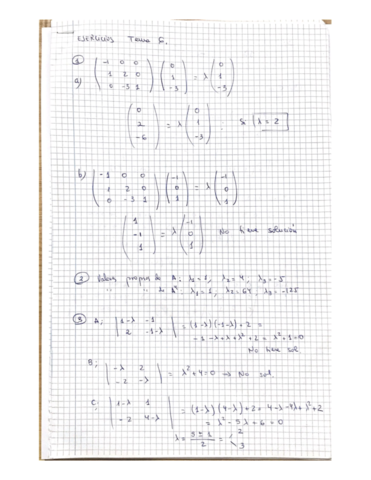 EJERCICIOS Tema 5.
①
a) ( -1 0 0 ; 1 2 0 ; 0 -3 1 ) ( 0 ; 1 ; -3 ) = λ ( 0 ; 1 ; -3 )
( 0 ; 2 ; -6 ) = λ ( 0 ; 1 ; -3 ) Si λ = 2
b) ( -1 0 0 ; 1 2 0 ; 0 -3 1 ) ( -1 ; 0 ; 1 ) = λ ( -1 ; 0 ; 1 )
( 1 ; -1 ; 1 ) = λ ( -1 ; 0 ; 1 ) No tiene solución
② Valores propios de A: λ₁=1, λ₂=4, λ₃=-5
" " de A³: λ₁=1, λ₂=64, λ₃=-125
③ A; | 1-λ -1 ; 2 -1-λ | = (1-λ)(-1-λ)+2 =
= -1-λ+λ+λ²+2 = λ²+1=0
No tiene sol.
B; | -λ 2 ; -2 -λ | = λ²+4=0 → No sol.
C; | 1-λ 1 ; -2 4-λ | = (1-λ)(4-λ)+2 = 4-λ-4λ+λ²+2
= λ²-5λ+6=0
λ = (5±1)/2 = 2 3